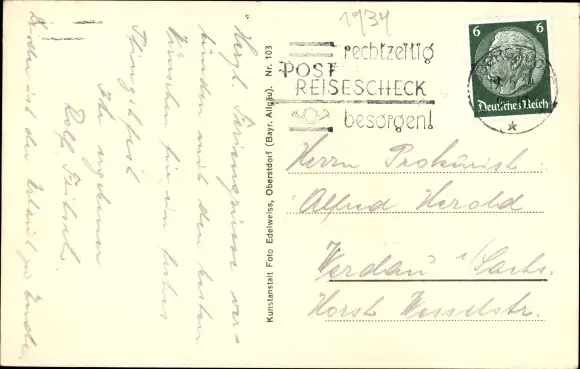 1934
rechtzeitig
POST
REISESCHECK
besorgen!
6 6
Deutsches Reich
Herrn Prokurist
Alfred Herold
Werdau i/Sachs.
Horst Wesselstr.
Kunstanstalt Foto Edelweiss, Oberstdorf (Bayr. Allgäu). Nr. 103
Herzl. Feriengrüsse ver-
bunden mit den besten
Wünschen für ein frohes
Pfingstfest
Ihr ergebener
Rolf
Leider ist der Urlaub zu Ende.